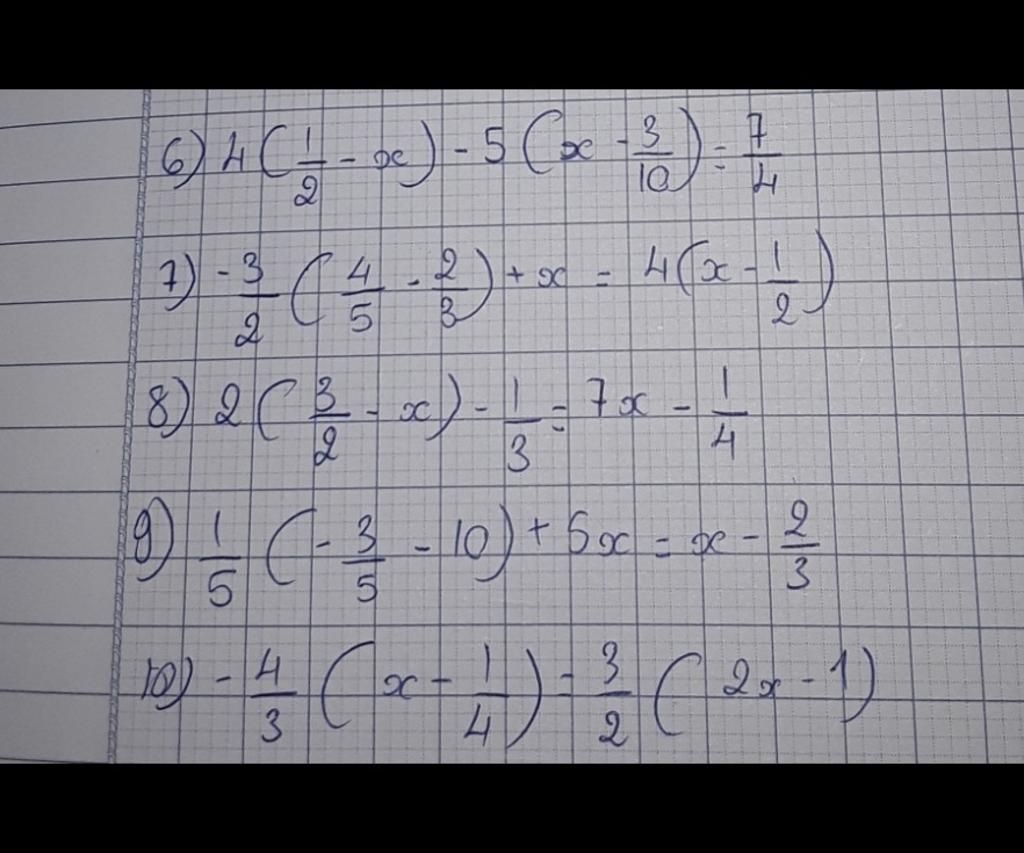 6) 4(1/2 - x) - 5(x - 3/10) = 7/4
7) -3/2 (4/5 - 2/3) + x = 4(x - 1/2)
8) 2(3/2 - x) - 1/3 = 7x - 1/4
9) 1/5 (-3/5 - 10) + 5x = x - 2/3
10) -4/3 (x - 1/4) = 3/2 (2x - 1)